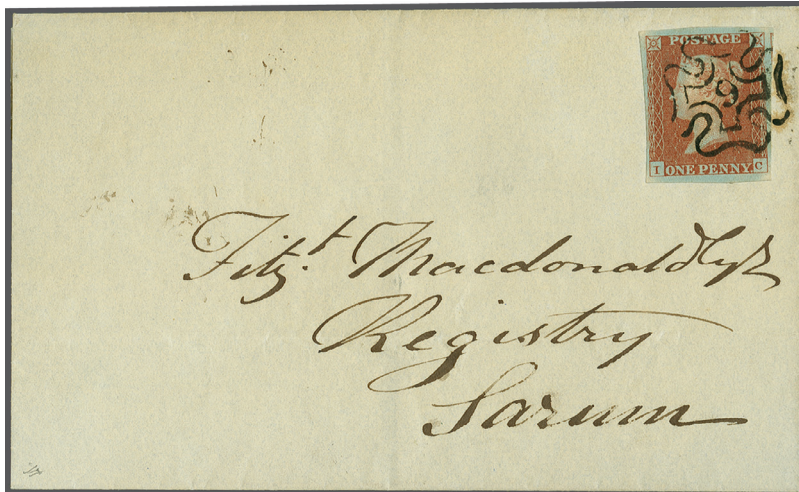 POSTAGE
9
I ONE PENNY C
Fitz.t Macdonald Esqr
Registry
Sarum